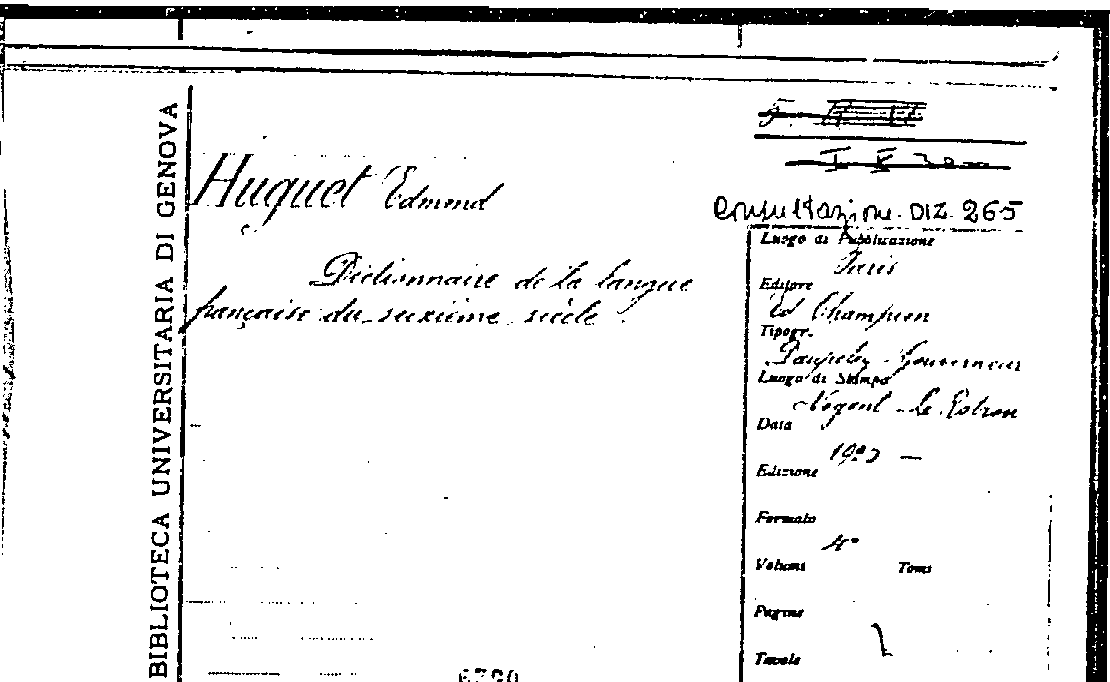 BIBLIOTECA UNIVERSITARIA DI GENOVA
Huguet Edmond
Dictionnaire de la langue
française du seizième siècle.
Consultazione. DIZ. 265
Luogo di Pubblicazione
Paris
Editore
Ed Champion
Tipogr.
Daupeley-Gouverneur
Luogo di Stampa
Nogent-le-Rotrou
Data
Edizione
Formato
4°
Volumi Tomi
Pagine
Tavole